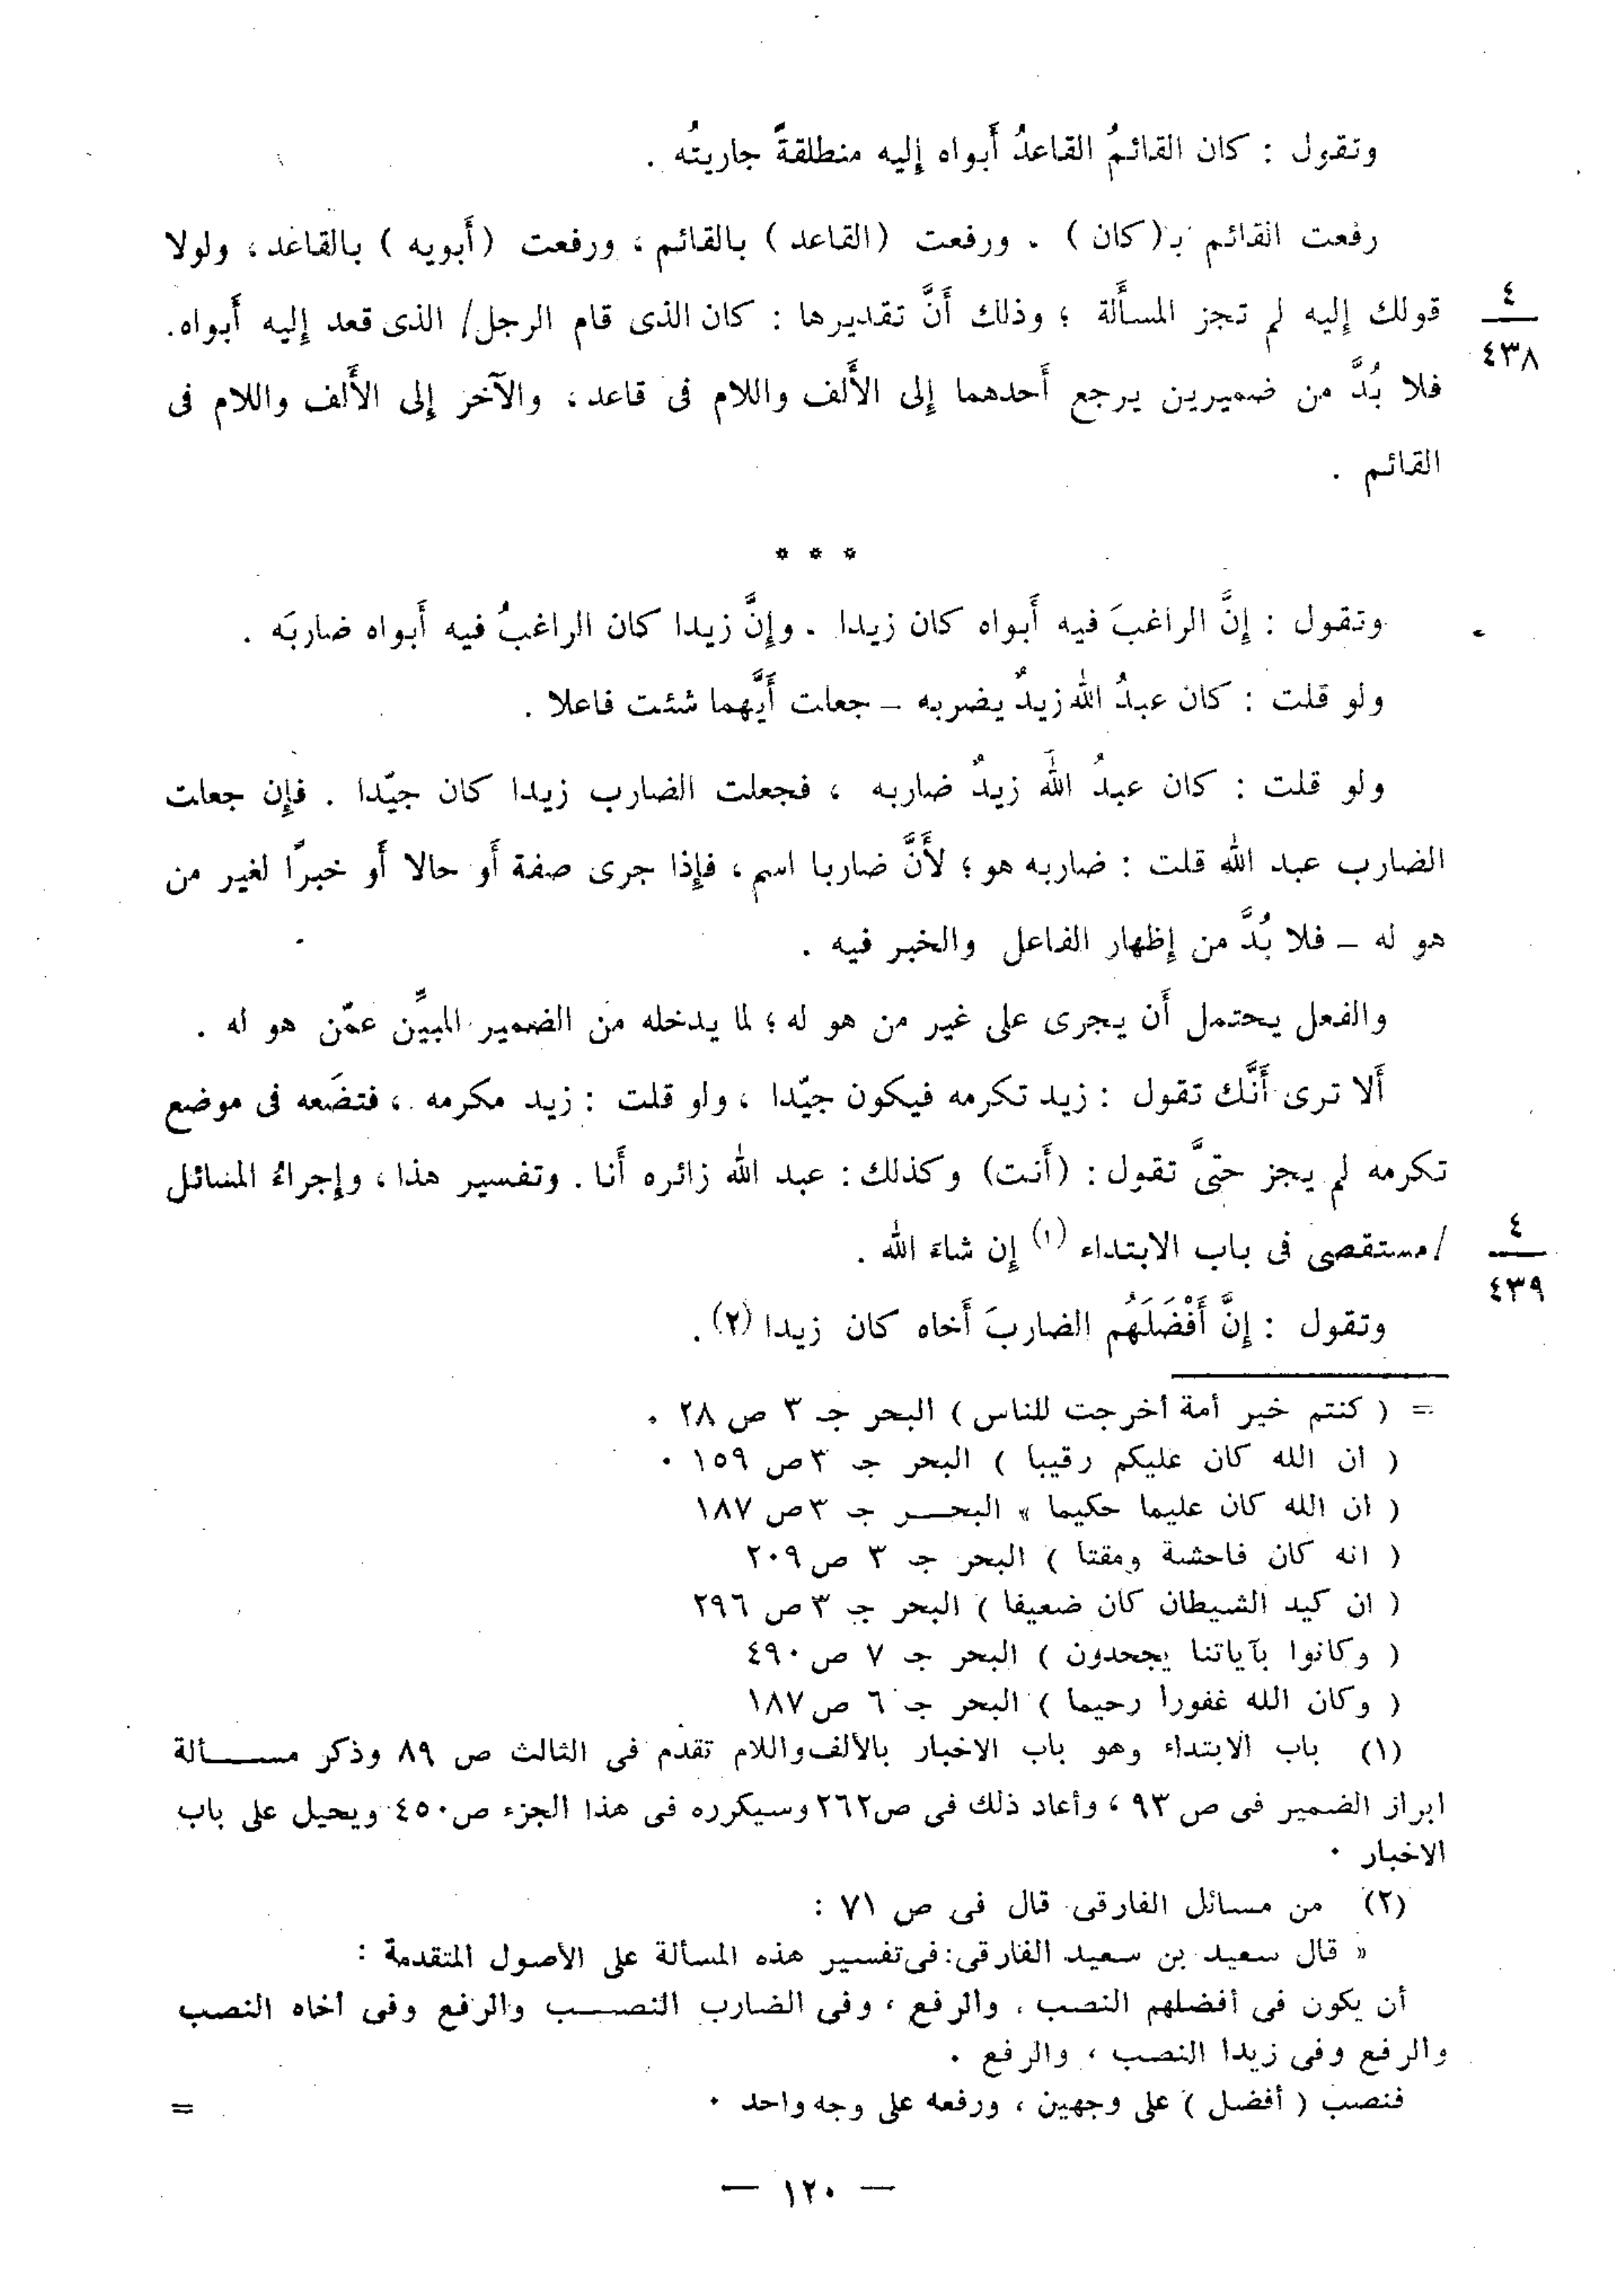 وتقول : كان القائمُ القاعدُ أَبواه إليه منطلقةً جاريتُه .
رفعت القائم بـ(كان) . ورفعت (القاعد) بالقائم ، ورفعت (أَبويه) بالقاعد ، ولولا
قولك إليه لم تجز المسأَلة ؛ وذلك أَنَّ تقديرها : كان الذى قام الرجل/ الذى قعد إليه أَبواه.
٤
٤٣٨
فلا بُدَّ من ضميرين يرجع أَحدهما إلى الأَلف واللام فى قاعد ، والآخر إلى الأَلف واللام فى
القائم .
* * *
وتقول : إنَّ الراغبَ فيه أَبواه كان زيدا . وإنَّ زيدا كان الراغبُ فيه أَبواه ضاربَه .
ولو قلت : كان عبدُ الله زيدٌ يضربه – جعلت أَيَّهما شئت فاعلا .
ولو قلت : كان عبدُ الله زيدٌ ضاربه ، فجعلت الضارب زيدا كان جيّدا . فإن جعلت
الضارب عبد الله قلت : ضاربه هو ؛ لأَنَّ ضاربا اسم ، فإذا جرى صفة أَو حالا أَو خبرًا لغير من
هو له – فلا بُدَّ من إظهار الفاعل والخبر فيه .
والفعل يحتمل أَن يجرى على غير من هو له ؛ لما يدخله من الضمير المبيِّن عمّن هو له .
أَلا ترى أَنَّك تقول : زيد تكرمه فيكون جيّدا ، ولو قلت : زيد مكرمه ، فتضَعه فى موضع
تكرمه لم يجز حتىَّ تقول : (أَنت) وكذلك : عبد الله زائره أَنا . وتفسير هذا ، وإجراءُ المسائل
/مستقصى فى باب الابتداء (١) إن شاءَ الله .
٤
٤٣٩
وتقول : إنَّ أَفْضَلَهُم الضاربَ أَخاه كان زيدا (٢) .
= ( كنتم خير أمة أخرجت للناس ) البحر جـ ٣ ص ٢٨ .
( ان الله كان عليكم رقيبا ) البحر جـ ٣ ص ١٥٩ .
( ان الله كان عليما حكيما » البحـــر جـ ٣ ص ١٨٧
( انه كان فاحشة ومقتا ) البحر جـ ٣ ص ٢٠٩
( ان كيد الشيطان كان ضعيفا ) البحر جـ ٣ ص ٢٩٦
( وكانوا بآياتنا يجحدون ) البحر جـ ٧ ص ٤٩٠
( وكان الله غفورا رحيما ) البحر جـ ٦ ص ١٨٧
(١) باب الابتداء وهو باب الاخبار بالألف واللام تقدم فى الثالث ص ٨٩ وذكر مســـألة
ابراز الضمير فى ص ٩٣ ، وأعاد ذلك فى ص ٢٦٢ وسيكرره فى هذا الجزء ص ٤٥٠ ويحيل على باب
الاخبار .
(٢) من مسائل الفارقى قال فى ص ٧١ :
« قال سعيد بن سعيد الفارقى : فى تفسير هذه المسألة على الأصول المتقدمة :
أن يكون فى أفضلهم النصب ، والرفع ، وفى الضارب النصـــب والرفع وفى أخاه النصب
والرفع وفى زيدا النصب ، والرفع .
فنصب ( أفضل ) على وجهين ، ورفعه على وجه واحد .
=
— ١٢٠ —